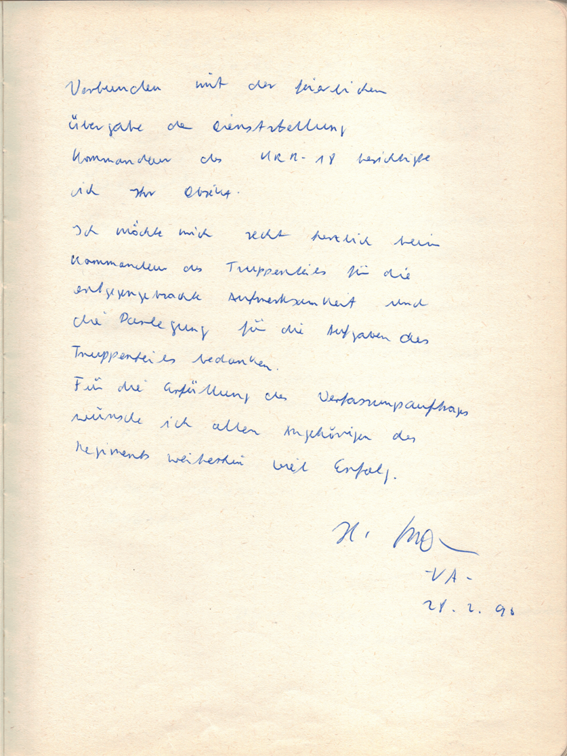 Verbunden mit der feierlichen
Übergabe der Dienststellung
Kommandeur des 18 besichtigte
ich Ihr Objekt.
Ich möchte mich recht herzlich beim
Kommandeur des Truppenteils für die
entgegengebrachte Aufmerksamkeit und
die Darlegung für die Aufgaben des
Truppenteils bedanken.
Für die Erfüllung des Verfassungsauftrages
wünsche ich allen Angehörigen des
Regiments weiterhin viel Erfolg.
-VA-
28. 2. 90